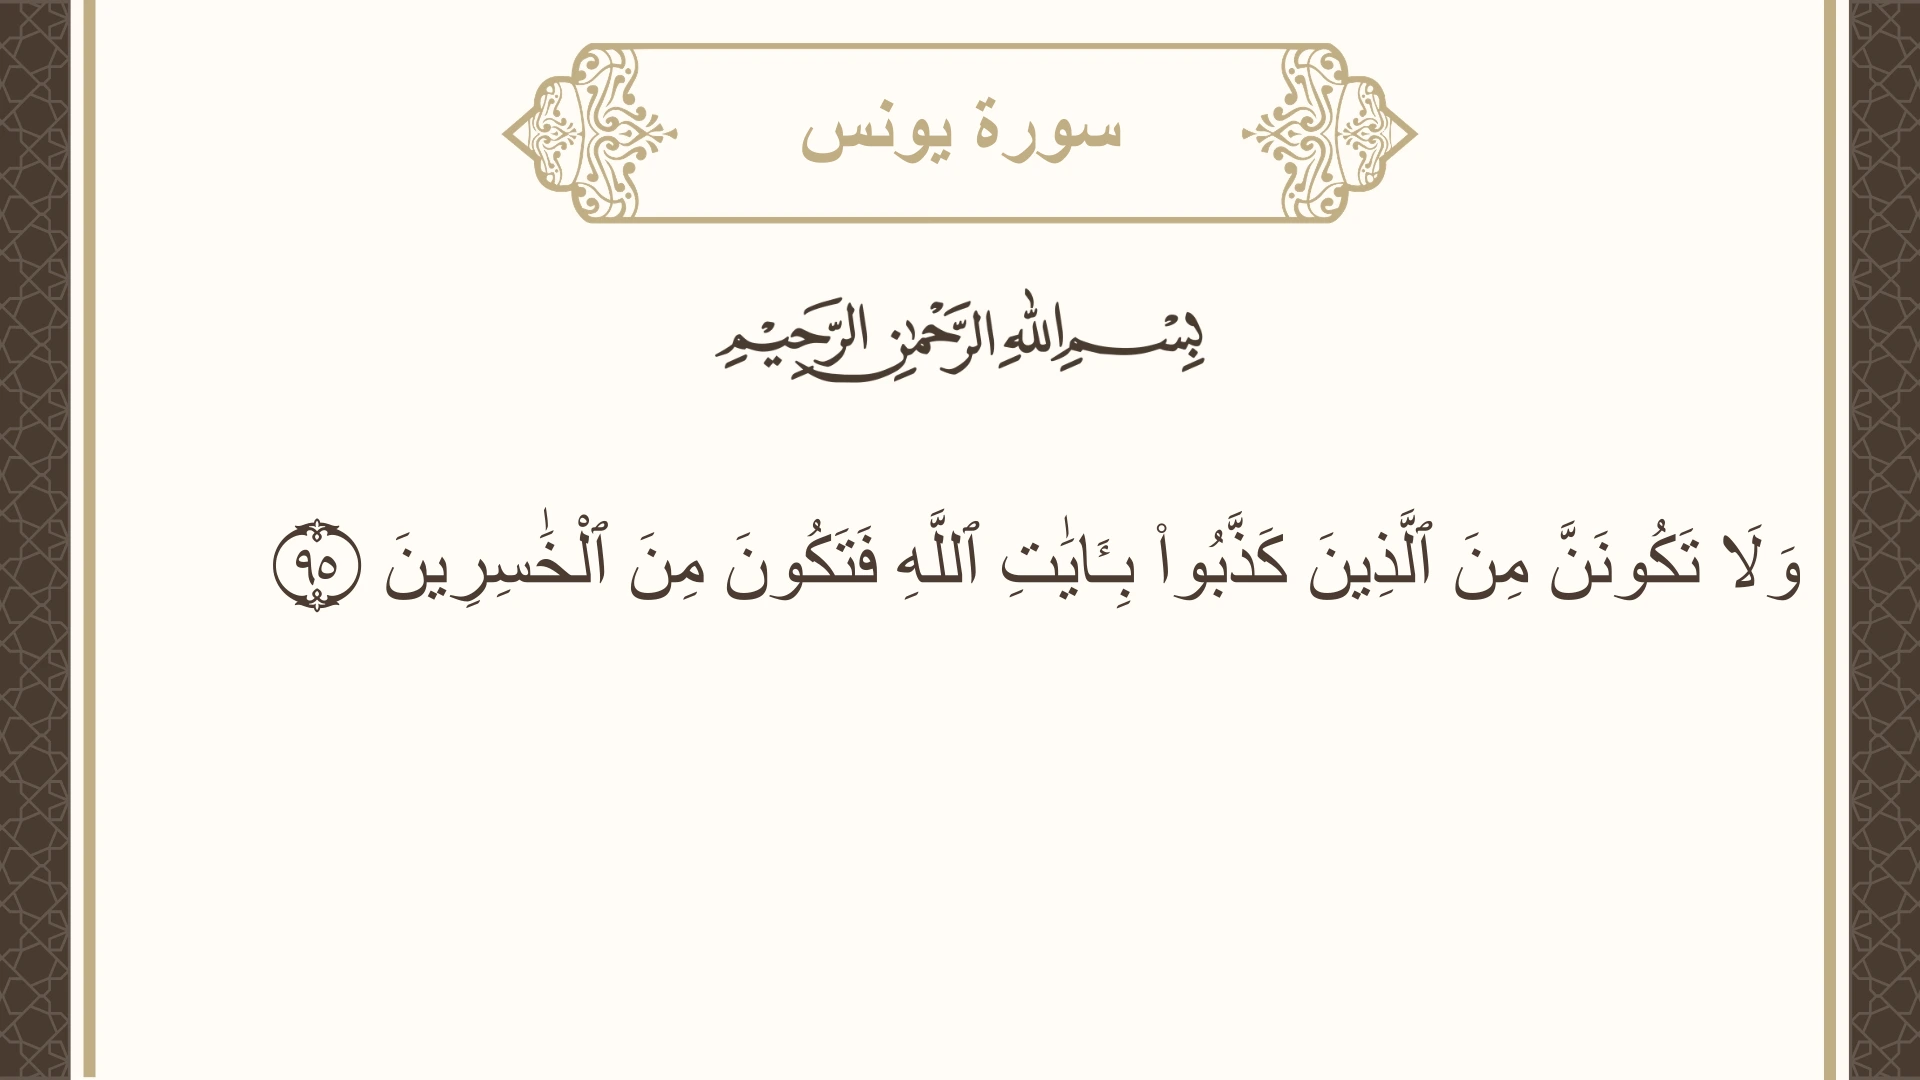 سورة يونس
بِسْمِ اللهِ الرَّحْمٰنِ الرَّحِيْمِ
وَلَا تَكُونَنَّ مِنَ ٱلَّذِينَ كَذَّبُوا۟ بِـَٔايَٰتِ ٱللَّهِ فَتَكُونَ مِنَ ٱلْخَٰسِرِينَ ٩٥